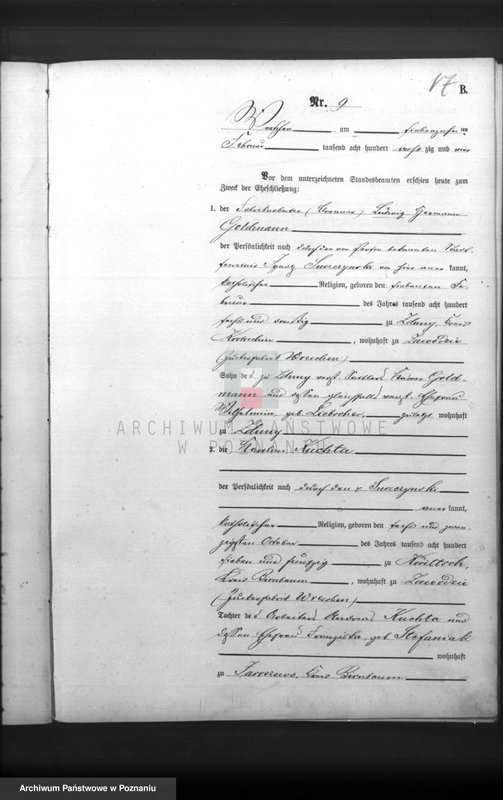 17
B.
Nr. 9
Wreschen am siebenzehnten
Februar tausend acht hundert sechs zig und vier
Vor dem unterzeichneten Standesbeamten erschien heute zum
Zweck der Eheschließung:
1. der Fabrikarbeiter Ludwig Hermann
Goldmann
der Persönlichkeit nach durch den von Person bekannten
Ignaz Smoczynski von hier kannt,
katholischer Religion, geboren den siebenten Fe-
bruar des Jahres tausend acht hundert
sechs und dreißig zu Zduny, Kreis
Krotoschin, wohnhaft zu Zawodzie
(Zuckerfabrik Wreschen)
Sohn des zu Zduny verst. Gold-
mann und dessen gleichfalls verst. Ehefrau
Wilhelmine, geb. zuletzt wohnhaft
zu Zduny
2. die Karoline Kuchta
der Persönlichkeit nach durch den p. Smoczynski
anerkannt,
katholischer Religion, geboren den sechs und zwan-
zigsten October des Jahres tausend acht hundert
sieben und fünfzig zu Kwiltsch,
Kreis Birnbaum, wohnhaft zu Zawodzie
(Zuckerfabrik Wreschen)
Tochter des Arbeiters Andreas Kuchta und
dessen Ehefrau Franziska geb. Stefaniak
wohnhaft
zu Jaroszewo, Kreis Birnbaum
ARCHIWUM PAŃSTWOWE
W POZNANIU
Archiwum Państwowe w Poznaniu